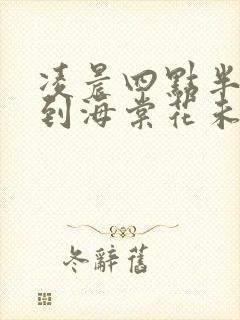 凌晨四點半
到海棠花未
冬辭舊